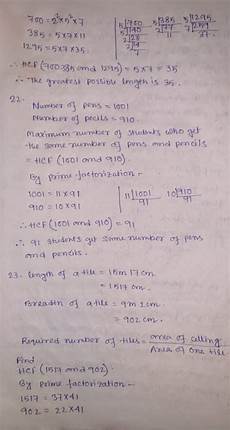 700 = 2²×5²×7
385 = 5×7×11
1295 = 5×7×35.
∴ HCF (700, 385 and 1295) = 5×7 = 35
∴ The greatest possible length is 35.
5|700 5|385 5|1295
5|140 7|77 7|259
2|28 11 37
2|14
7
22.
Number of pens = 1001
Number of pecils = 910.
Maximum number of students who get
the same number of pens and pencils
= HCF (1001 and 910).
By prime factorization -
1001 = 11×91
910 = 10×91
11|1001 10|910
91 91
∴ HCF (1001 and 910) = 91
∴ 91 students get same number of pens
and pencils.
23. length of a tile = 15m 17cm
= 1517 cm.
Breadth of a tile = 9m 2cm
= 902 cm.
Required number of tiles = area of ceiling
Area of one tile
Find
HCF (1517 and 902)
By prime factorization -
1517 = 37×41
902 = 22×41